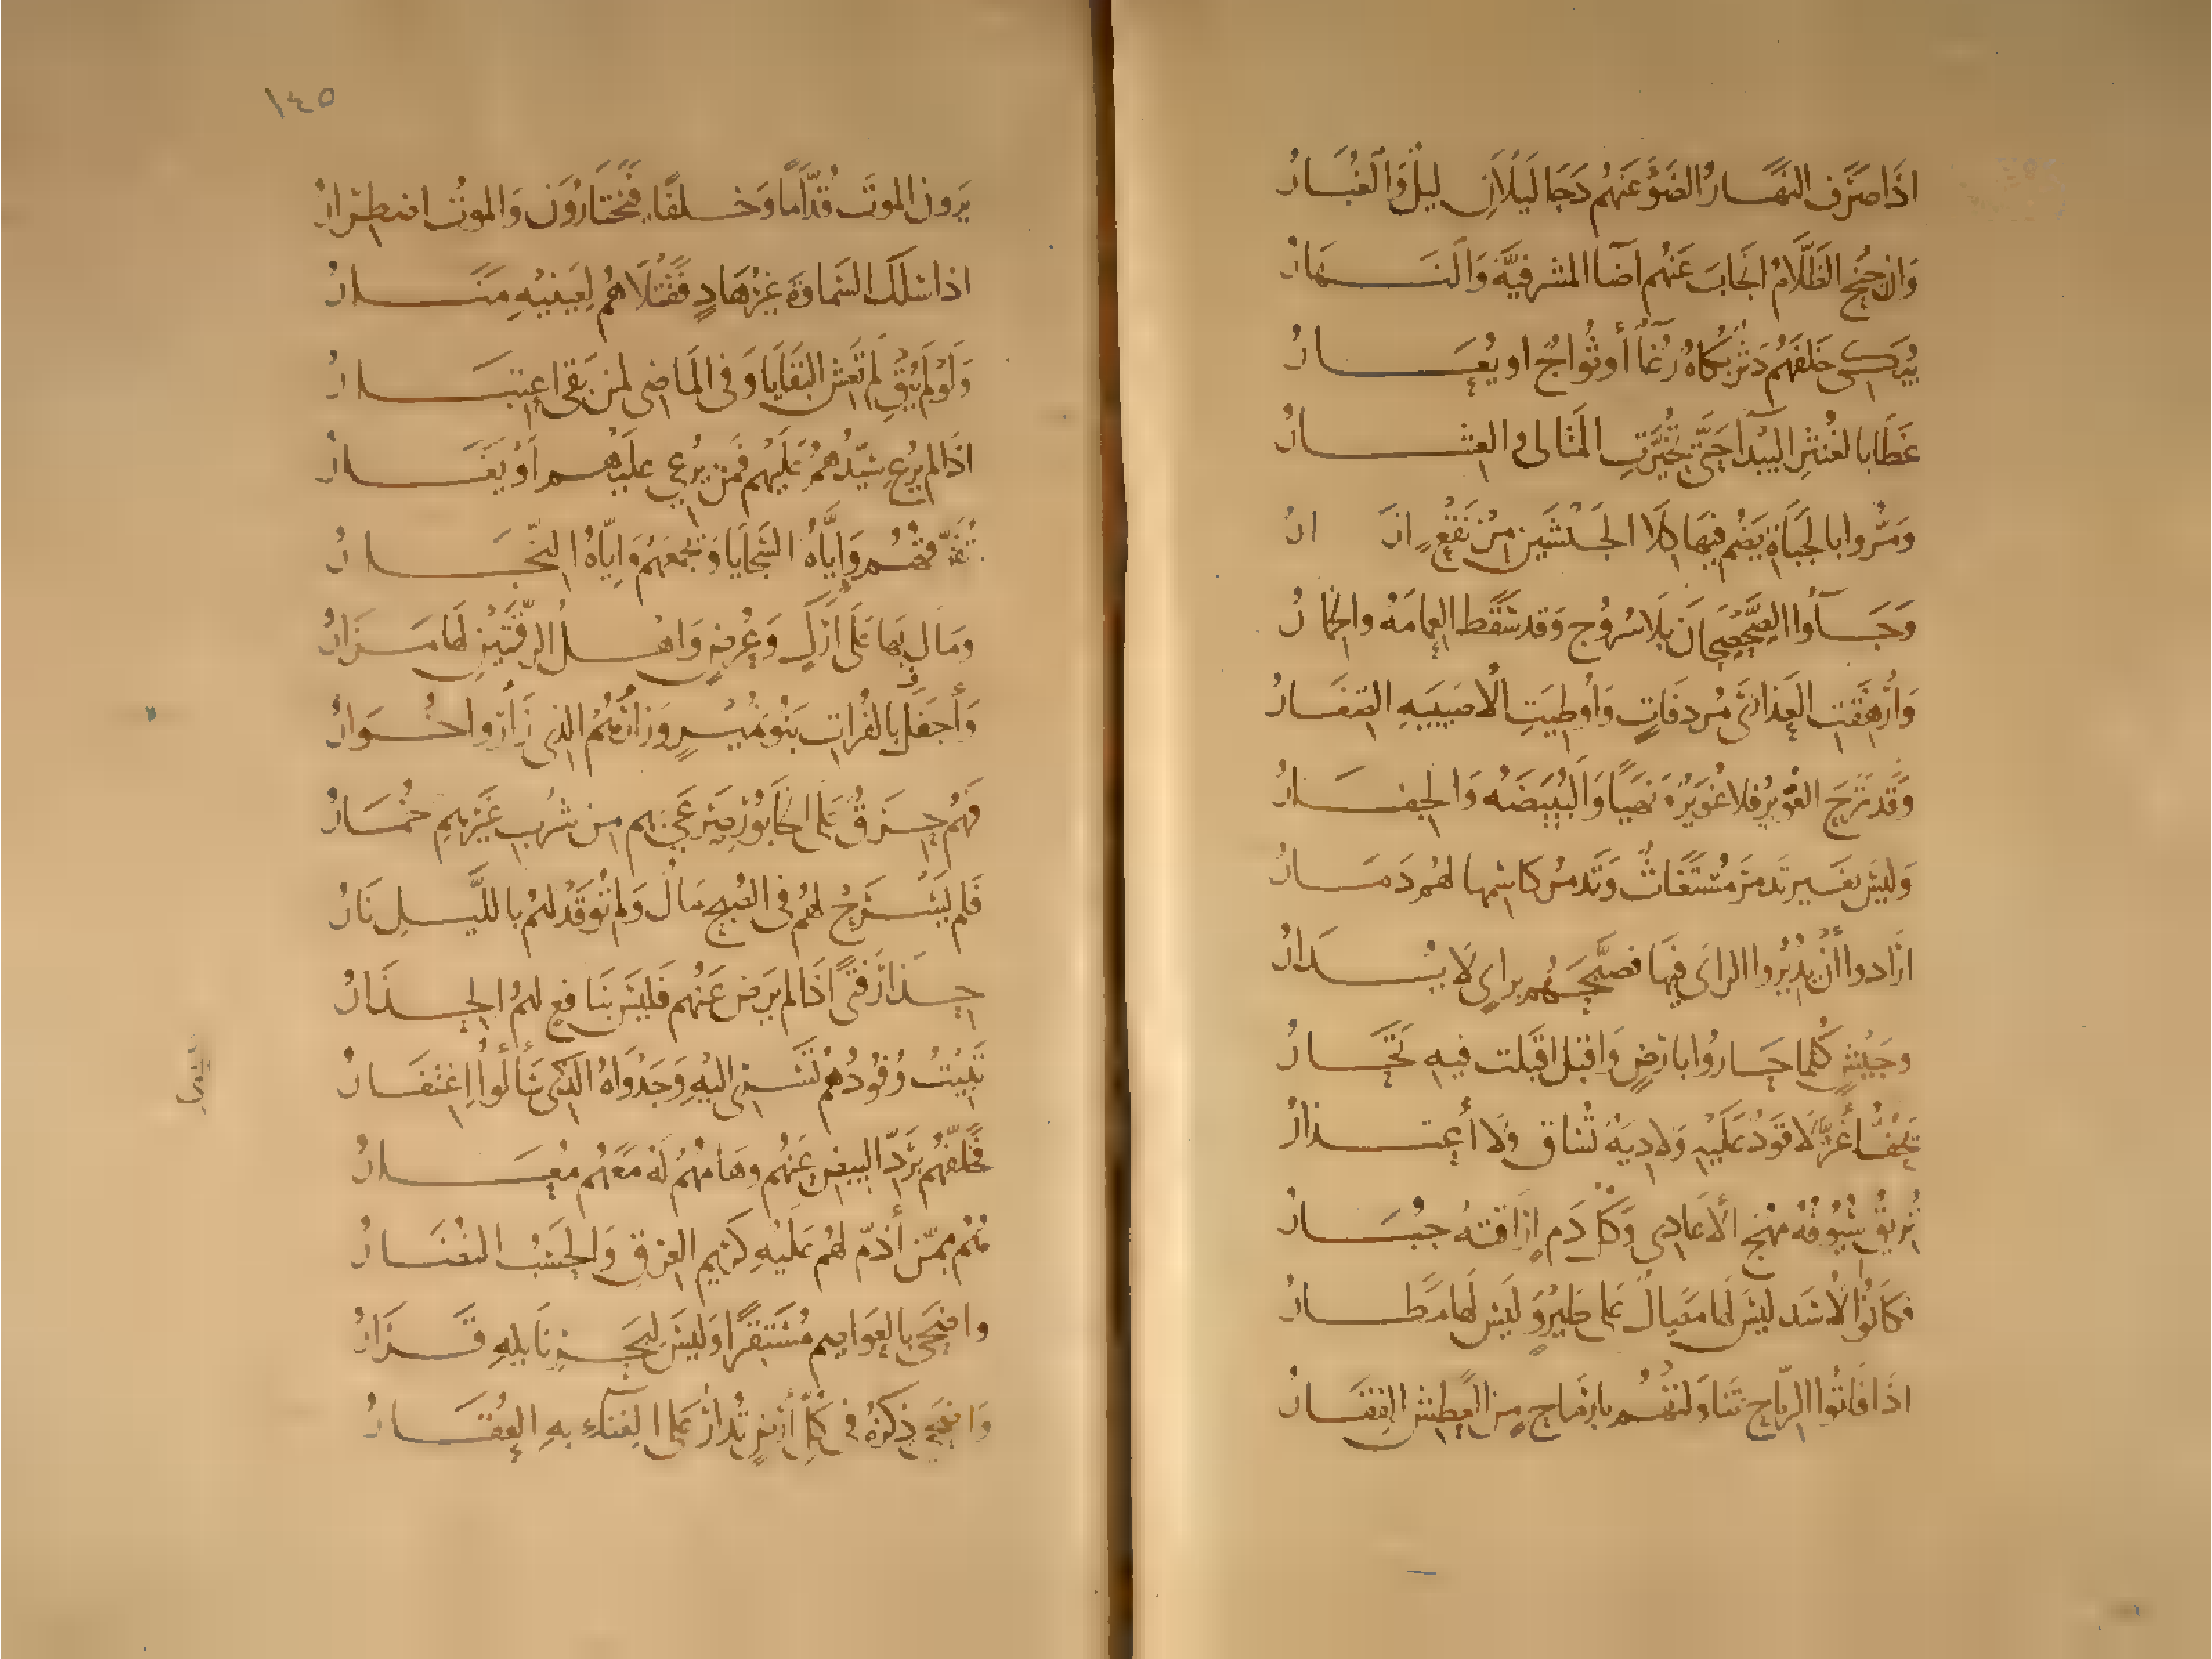 اذَا صَرَفَ النَهَارُ الضَوْءَ عَنهُم دَجَا لَيلَانِ ليلٌ وَالغُبَارُ
وَان جِنحُ الظَّلَامِ انجَابَ عَنْهُم اضَا المشرفيَّةُ وَالنَهَارُ
يُبَكِّى خَلفَهُم دَثْرٌ بُكَاهُ رُغَآءٌ أو ثُوَاجٌ او يُعَارُ
غَطَا بالغُنثُرِ البَيْدَآءَ حَتَّى تَخُيِّرَتِ المَتَالى والعِشَارُ
وَمَرُّوا بالجَبَاةِ يَضُم فِيهَا كِلَا الجَيْشَينِ مِن نَقْعٍ ازَارُ
وَجَآوا الصَّحْصَحَانَ بِلَا سُرُوج وَقَد سَقَطَ العِمَامَةُ والخِمَارُ
وَأُرْهِقَتِ العَذَارَى مُردَفَاتٍ وَأُوطِيَتِ الأُصَيبِيَةِ الصِغَارُ
وَقَد نُزِحَ الغُوَيرُ فلا غُوَيْرٌ وَنِهيَا وَالبُيَيضَةُ وَالجِفَارُ
وَلَيسَ بِغَيرِ تَدمُرَ مُستَغَاثٌ وَتَدمُرُ كَاسمِها لهُم دَمَارُ
ارَادوا أنْ يُدِيْرُوا الراىَ فِيهَا فصَبَّحَهُم براىٍ لَا يُدَارُ
وجَيْشٍ كُلما حَاروا بارضٍ وَاقبَل اقبَلت فيهِ تَحَارُ
يَحُفُّ أَغَرَّ لَا قَوَدٌ عَلَيْهِ وَلا دِيَةٌ تُسَاق وَلا أعِتذارُ
تُرِيقُ سُيُوفُهُ مُهَجَ الأعَادِى وَكُلُ دَمٍ ارَاقتهُ جُبَارُ
فكَانُوا الأُسْدَ ليْسَ لَهَا مَصَالٌ عَلَى طَيْرٍ وَلَيسَ لَهَا مَطَارُ
اذَا فَاتُوا الرِمَاحَ تَنَاوَلتهُم بارمَاحٍ مِن العَطشِ القِفَارُ
١٤٥
يَرَونَ الموتَ قُدَّامًا وَخَلفًا فَيَختَارُوْنَ وَالموتُ اضطِرَارُ
اذا سَلَكَ السَمَاوَةَ غيْرُ هَادٍ فَقَتْلَاهُم لِعَينَيْهِ مَنَارُ
وَلَوْ لَم يُبْقِ لَم تَعِش البَقَايَا وَفِى المَاضِى لمن بَقِى اعِتبَارُ
اذَا لم يُرْعِ سَيِّدُهُمْ عَلَيْهِم فَمَن يُرْعِى عَليْهِم اوْ يَغَارُ
تُفَرِّقُهُم وَايَّاهُ السَجَايَا وَتَجمعُهُم وَايّاهُ النِجَارُ
وَمَالَ بِهَا عَلَى ارَكٍ وَعُرضٍ وَاهلُ الرَقّتَيْنِ لَهَا مَزَارُ
وَأجفَلَ بالفُرَاتِ بَنُو نُمَيْرٍ وَزأرُهُمُ الذى زَأرُوا خُوَارُ
فَهُم حِزَقٌ عَلَى الخَابُورِ صَرعَى بِهِم مِن شُربِ غَيْرِهِمِ خُمَارُ
فَلم يَسْرَحْ لهُم فى الصُبْحِ مَالٌ وَلم تُوقَدْ لهُم باللَّيلِ نَارُ
حِذَارَ فَتًى اذَا لم يَرضَ عَنْهُم فَليْسَ بنَافِعٍ لهُمُ الحِذَارُ
تَبِيْتُ وُفُودُهُمْ تَسرِى اليْهِ وَجَدْوَاهُ الَّتى سَألُوا اغتِفَارُ
فَخَلَّفَهُم بِرَدِّ البِيضِ عَنْهُم وهَامُهُمُ لَهُ مَعَهُم مُعَارُ
هُمُ مِمَّن أذَمَّ لهُم عَلَيْهِ كَرِيمُ العِرقِ وَالحَسَبُ النُضَارُ
واضحَى بالعَوَاصِمِ مُسْتَقِرًّا وَلَيْسَ لِبَحرِ نَايلِهِ قَرَارُ
وَاضحَى ذِكرُهُ فى كُلِّ أرضٍ تُدَارُ عَلَى الغِنَاءِ بهِ العُقَارُ